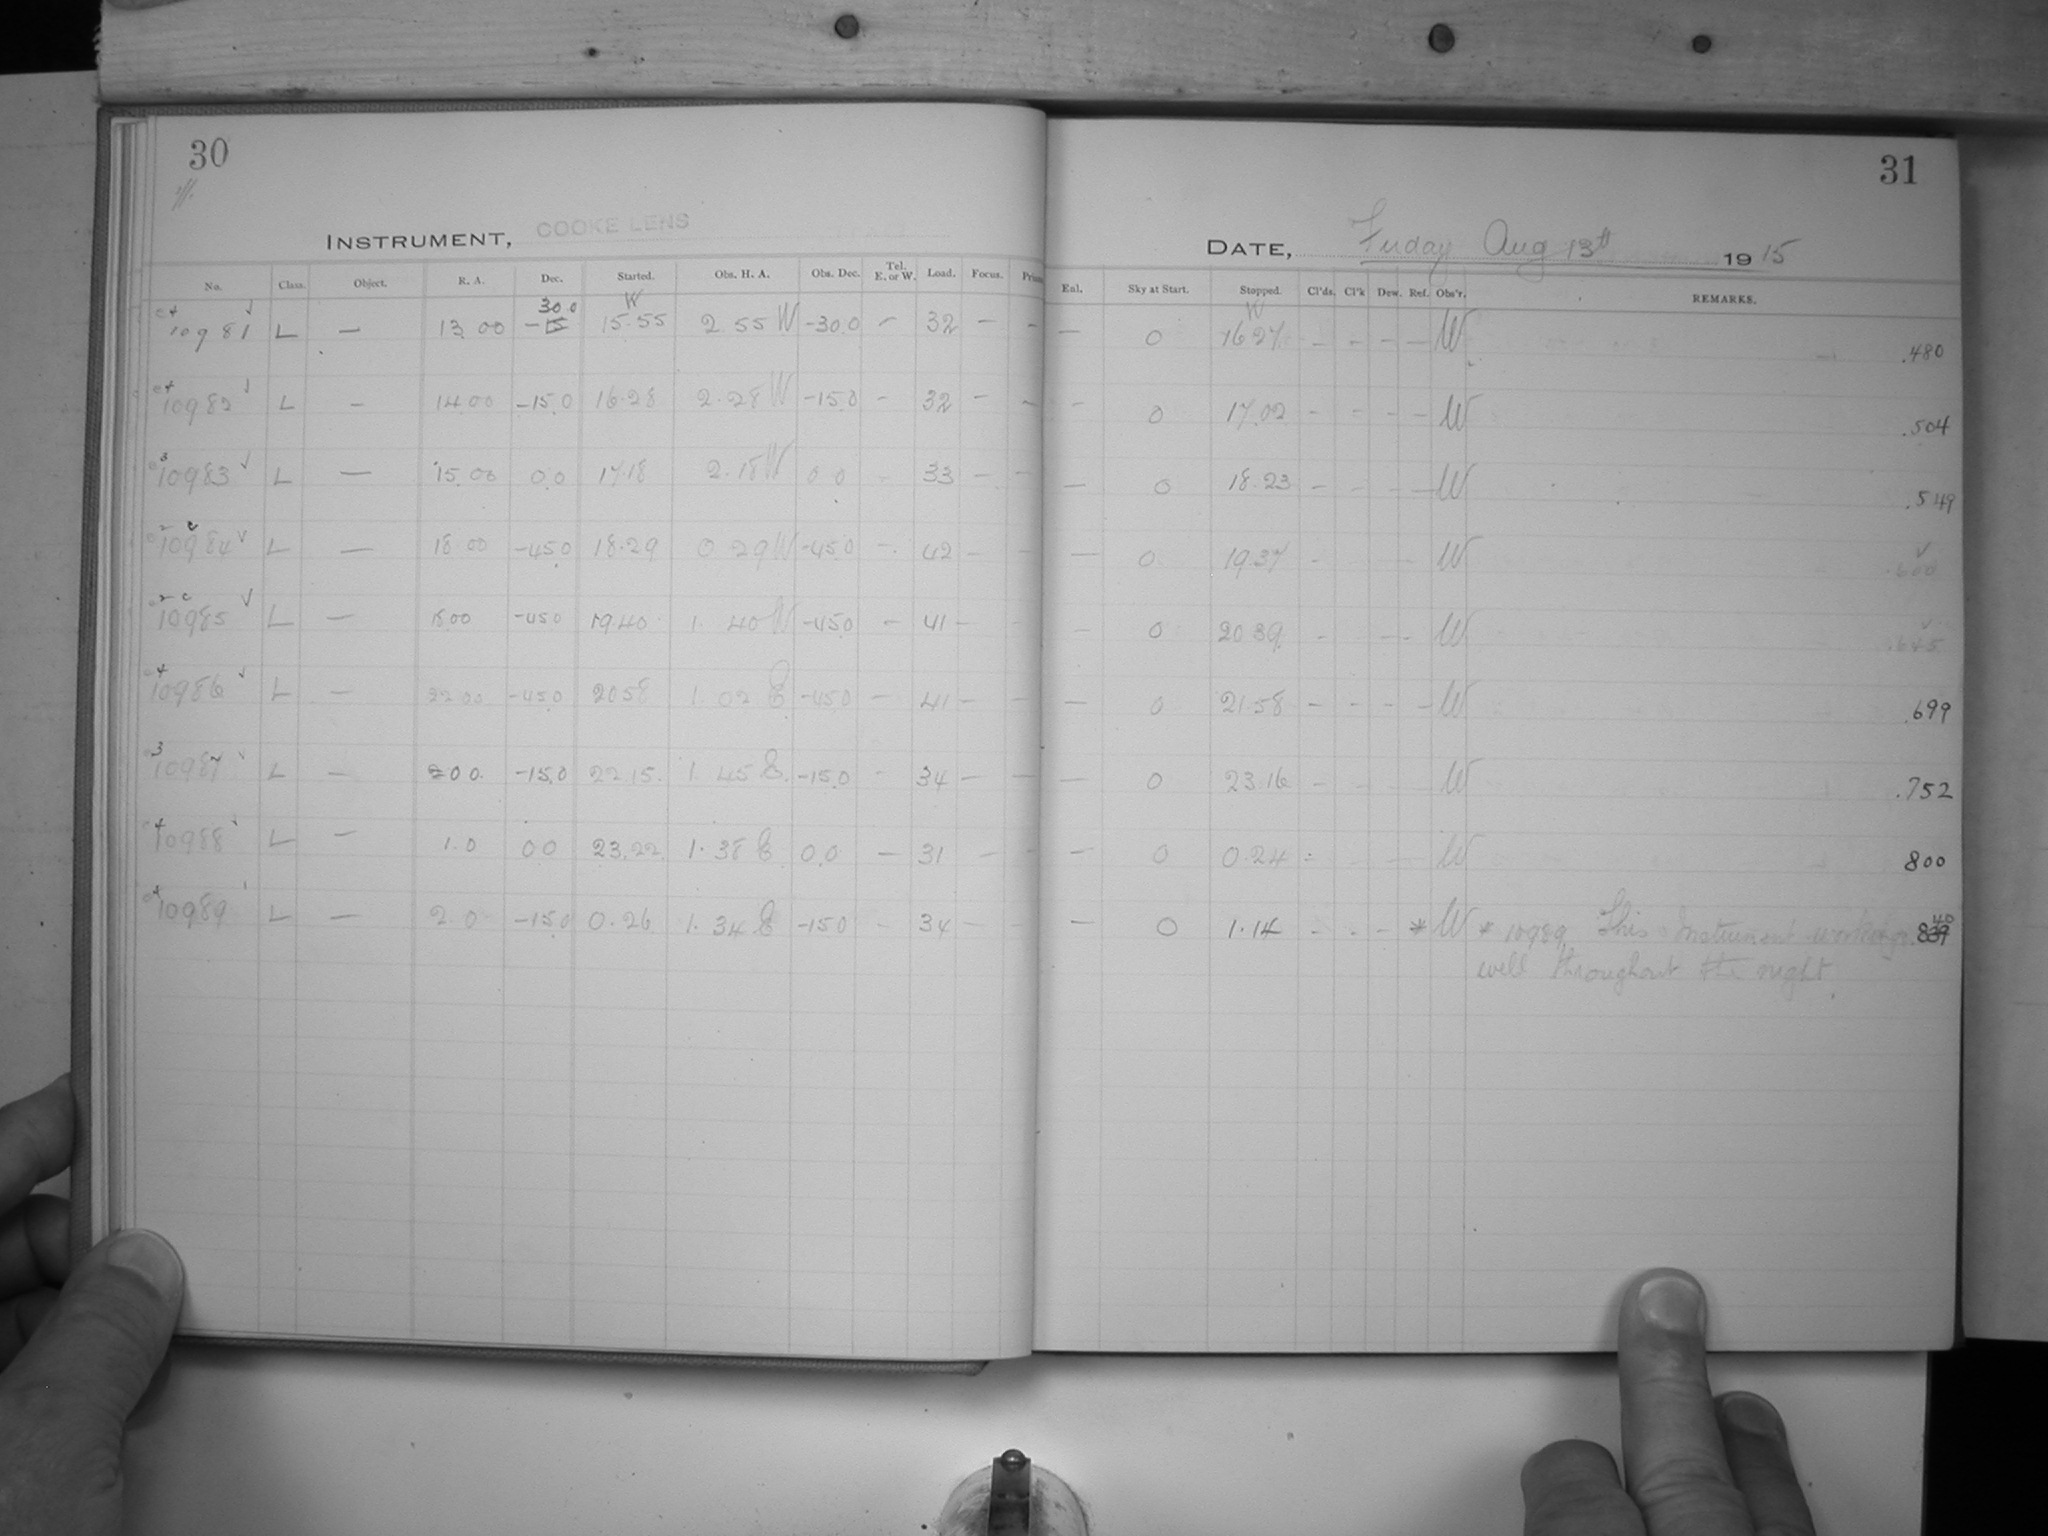 30
31
INSTRUMENT, COOKE LENS
DATE, Friday Aug 13th 1915
No. Class. Object. R. A. Dec. Started. Obs. H. A. Obs. Dec. Tel. E. or W. Load. Focus. Prism
Eul. Sky at Start. Stopped. Cl'ds. Cl'k Dew. Ref. Obs'r. REMARKS.
30.0 W W
10981 L — 13 00 -15 15.55 2.55 W -30.0 - 32 - - — 0 16 27 - - - - W .480
10982 L — 14 00 -15.0 16.28 2.28 W -15.0 - 32 - - - 0 17.02 - - - - W .504
10983 L — 15.00 0.0 17.18 2.18 W 0 0 - 33 - - — 0 18.23 - - - - W .549
10984 L — 18.00 -45.0 18.29 0 29 W -45.0 - 42 - - — 0 19.37 - - - - W .600
10985 L — 18.00 -45.0 19.40 1. 40 W -45.0 - 41 - - - 0 20 39 - - - W .645
10986 L — 22 00 -45.0 20 58 1. 02 E -45.0 - 41 - - — 0 21.58 - - - - W .699
10987 L — 0 0. -15.0 22.15. 1. 45 E. -15.0 - 34 - - — 0 23.16 - - - W .752
10988 L — 1.0 0 0 23.22 1. 38 E 0.0 — 31 - - — 0 0.24 - - - W 800
10989 L — 2.0 -15.0 0.26 1. 34 E -15 0 - 34 - - — 0 1.14 - - - * W * 10989 This Instrument working .839 40
well throughout the night.